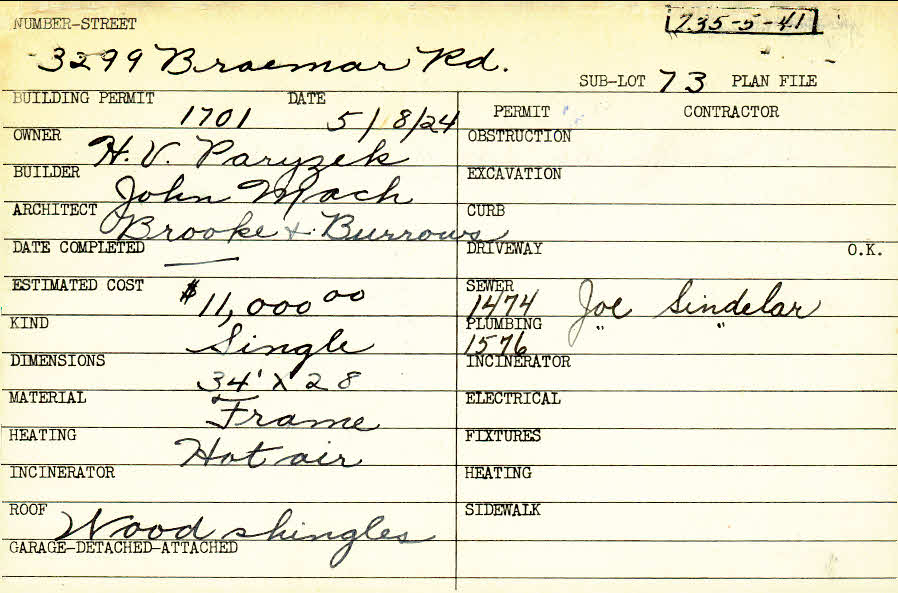 NUMBER-STREET
735-5-41
3299 Braemar Rd.
SUB-LOT 73 PLAN FILE
BUILDING PERMIT 1701 DATE 5/8/24
PERMIT CONTRACTOR
OWNER H. V. Paryzek
OBSTRUCTION
BUILDER John Mach
EXCAVATION
ARCHITECT Brooke & Burrows
CURB
DATE COMPLETED —
DRIVEWAY O.K.
ESTIMATED COST $11,000 00
SEWER 1474 Joe Sindelar
KIND Single
PLUMBING 1576 " "
DIMENSIONS 34' X 28
INCINERATOR
MATERIAL Frame
ELECTRICAL
HEATING Hot air
FIXTURES
INCINERATOR
HEATING
ROOF Wood shingles
SIDEWALK
GARAGE-DETACHED-ATTACHED